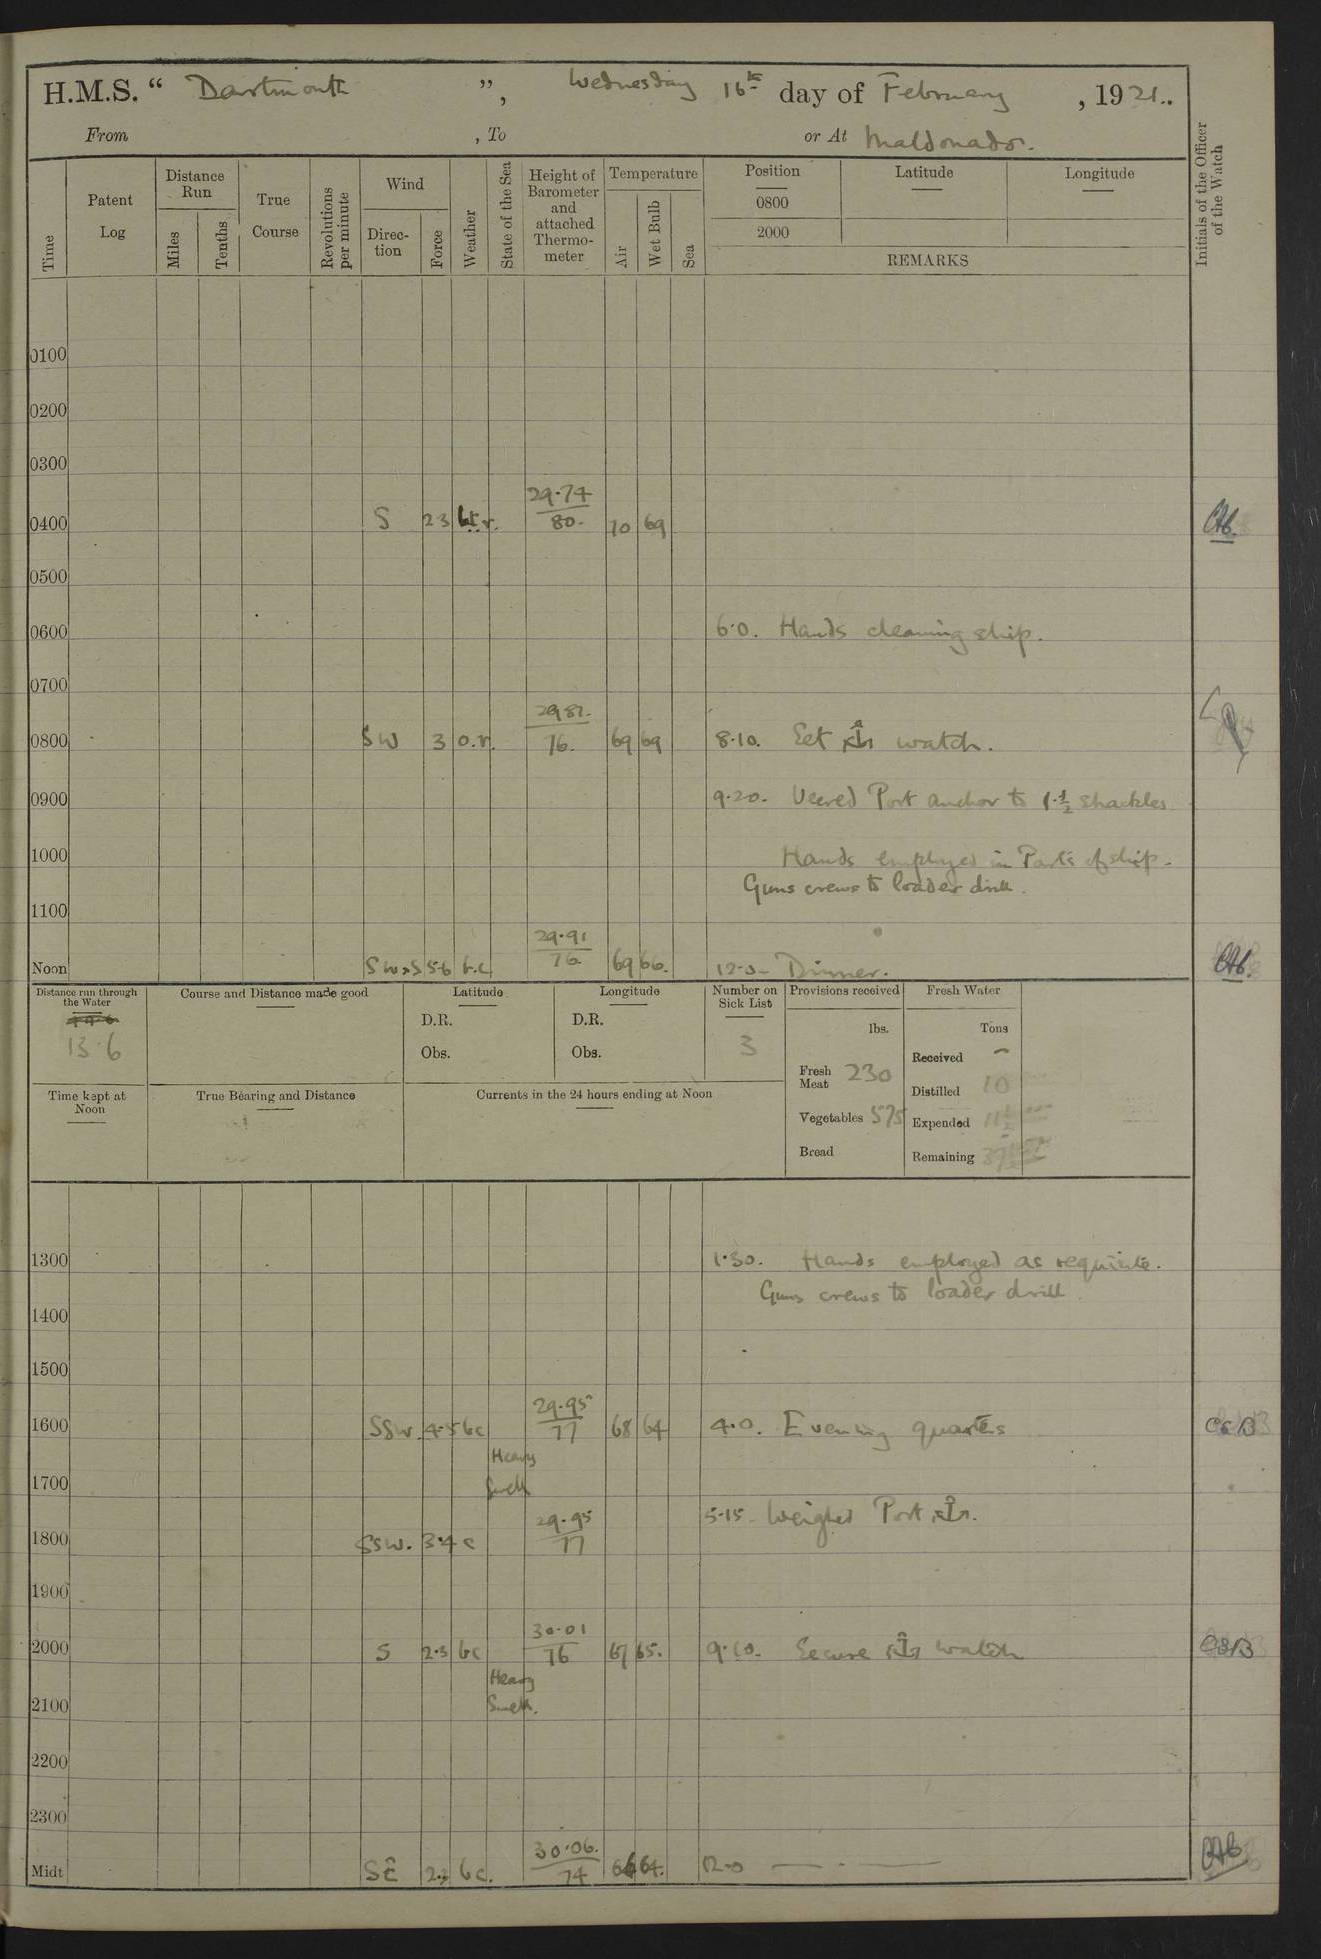 H.M.S. “ Dartmouth ”, Wednesday 16th day of February, 1921.
From , To or At Maldonado.
Time
Patent Log
Distance Run
Miles
Tenths
True Course
Revolutions per minute
Wind
Direction
Force
Weather
State of the Sea
Height of Barometer and attached Thermometer
Temperature
Air
Wet Bulb
Sea
Position
0800
2000
Latitude
Longitude
REMARKS
Initials of the Officer of the Watch
0100
0200
0300
0400 S 2 3 29.74 80. 70 69
0500
0600 6.0. Hands cleaning ship.
0700
0800 SW 3 o.r. 29 81. 76. 69 69 8.10. Set ⚓ watch.
0900 9.20. Veered Port anchor to 1.½ shackles
1000 Hands employed in Parts of ship.
Guns crews to loader drill.
1100
Noon SWxS 5-6 b.c. 29.91 76 69 66. 12-0- Dinner.
Distance run through the Water
13.6
Course and Distance made good
Latitude
D.R.
Obs.
Longitude
D.R.
Obs.
Number on Sick List
3
Provisions received
lbs.
Fresh Meat 230
Vegetables 575
Bread
Fresh Water
Tons
Received -
Distilled 10
Expended 11½
Remaining
Time kept at Noon
True Bearing and Distance
Currents in the 24 hours ending at Noon
1300 1.30. Hands employed as requisite.
Guns crews to loader drill.
1400
1500
1600 SSW. 4-5 bc 29.95 77 68 64 4.0. Evening quarters
Heavy
Swell
1700
5.15. Weighed Port ⚓.
1800 SSW. 3.4 c 29.95 77
1900
2000 S 2.3 bc 30.01 76 67 65. 9.10. Secure ⚓ watch
Heavy
Swell.
2100
2200
2300
Midt SE 2.3 bc. 30.06. 74 64. 12-0